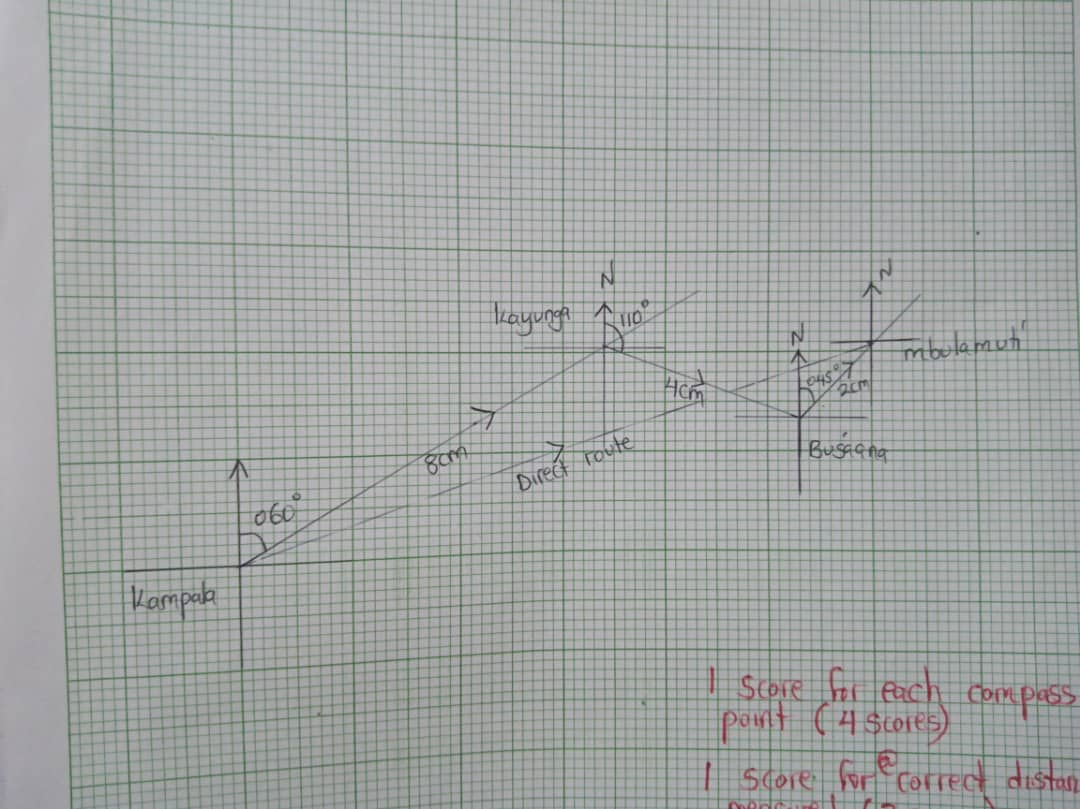 N
N
Kayunga
110°
N
mbulamuti
045°
2cm
4cm
Busaana
8cm
Direct route
060°
Kampala
1 score for each compass
point (4 scores)
1 score for @ correct distan